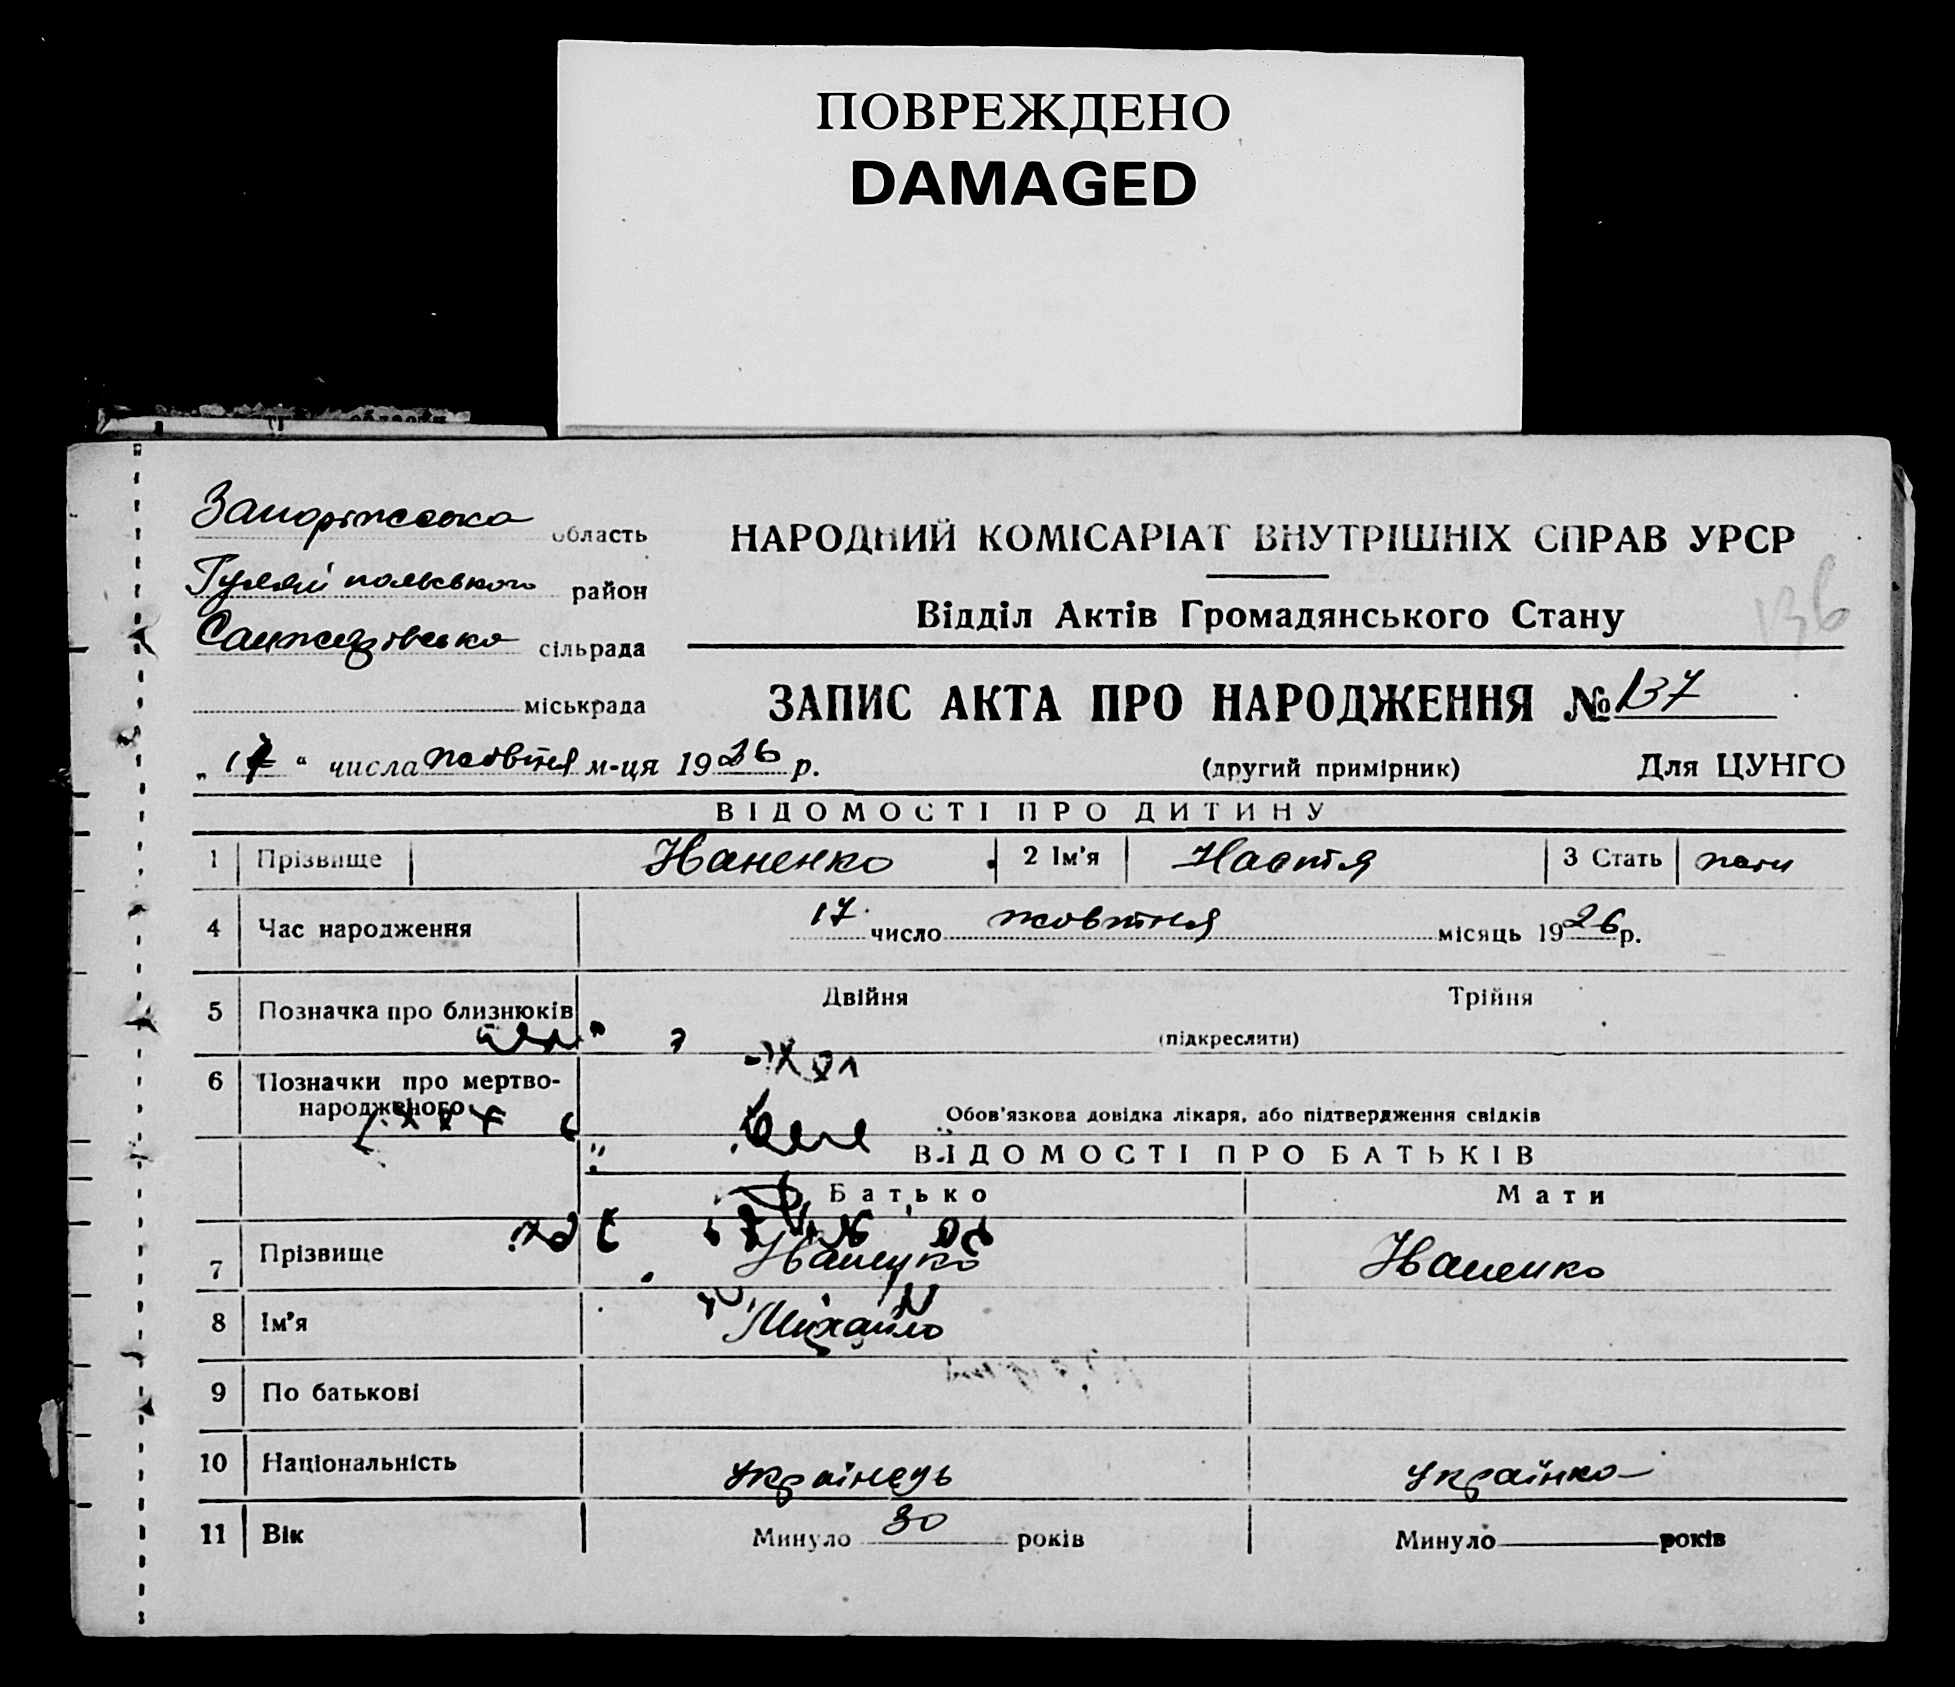 ПОВРЕЖДЕНО
DAMAGED
Запоріжська область
Гуляй польського район
Санжарівська сільрада
міськрада
НАРОДНИЙ КОМІСАРІАТ ВНУТРІШНІХ СПРАВ УРСР
136
Відділ Актів Громадянського Стану
ЗАПИС АКТА ПРО НАРОДЖЕННЯ № 137
„17“ числа жовтня м-ця 1926 р.
(другий примірник)
Для ЦУНГО
ВІДОМОСТІ ПРО ДИТИНУ
1 Прізвище Іваненко 2 Ім'я Настя 3 Стать
4 Час народження 17 число жовтня місяць 1926 р.
5 Позначка про близнюків Двійня Трійня
(підкреслити)
6 Позначки про мертво-
народженого
Обов'язкова довідка лікаря, або підтвердження свідків
ВІДОМОСТІ ПРО БАТЬКІВ
Батько Мати
7 Прізвище Іваненко Іваненко
8 Ім'я Михайло
9 По батькові
10 Національність українець українка
11 Вік Минуло 30 років Минуло років